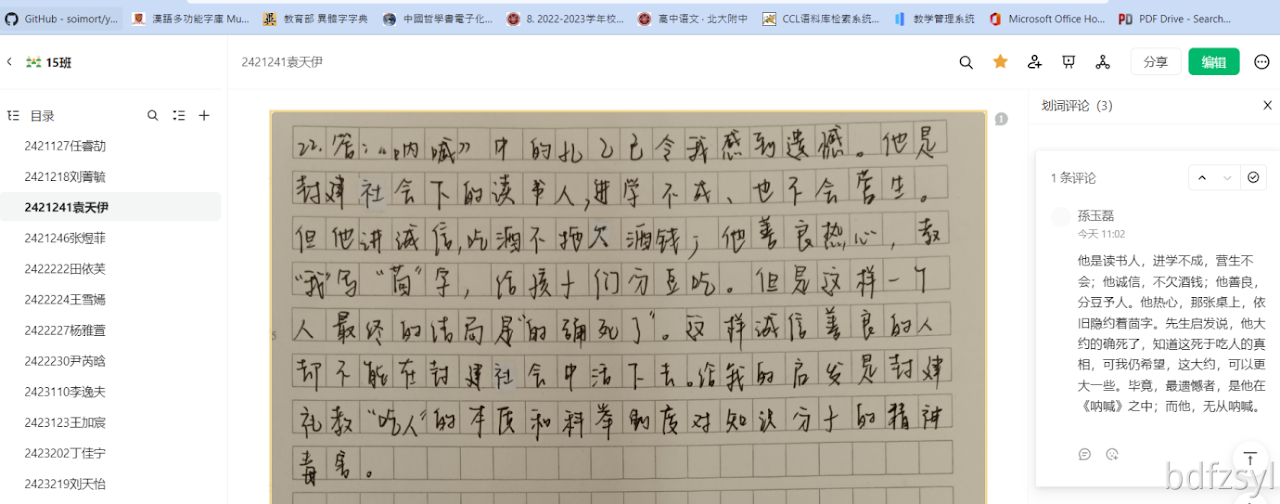 GitHub - soimort/y...
漢語多功能字庫 Mu...
教育部 異體字字典
中國哲學書電子化...
8. 2022-2023学年校...
高中语文 · 北大附中
CCL语料库检索系统...
教学管理系统
Microsoft Office Ho...
PDF Drive - Search...
15班
2421241袁天伊
分享
编辑
目录
2421127任睿劼
2421218刘菁毓
2421241袁天伊
2421246张煜菲
2422222田依芙
2422224王雪嫣
2422227杨雅萱
2422230尹芮晗
2423110李逸夫
2423123王加宸
2423202丁佳宁
2423219刘天怡
22.答：“呐喊”中的孔乙己令我感到遗憾。他是
封建社会下的读书人，进学不成、也不会营生。
但他讲诚信，吃酒不拖欠酒钱；他善良热心，教
“我”写“茴”字，给孩子们分豆吃。但是这样一个
人最终的结局是“的确死了”。这样诚信善良的人
却不能在封建社会中活下去。给我的启发是封建
礼教“吃人”的本质和科举制度对知识分子的精神
毒害。
5
1
划词评论（3）
1 条评论
孫玉磊
今天 11:02
他是读书人，进学不成，营生不
会；他诚信，不欠酒钱；他善良，
分豆予人。他热心，那张桌上，依
旧隐约着茴字。先生启发说，他大
约的确死了，知道这死于吃人的真
相，可我仍希望，这大约，可以更
大一些。毕竟，最遗憾者，是他在
《呐喊》之中；而他，无从呐喊。
bdfzsyl